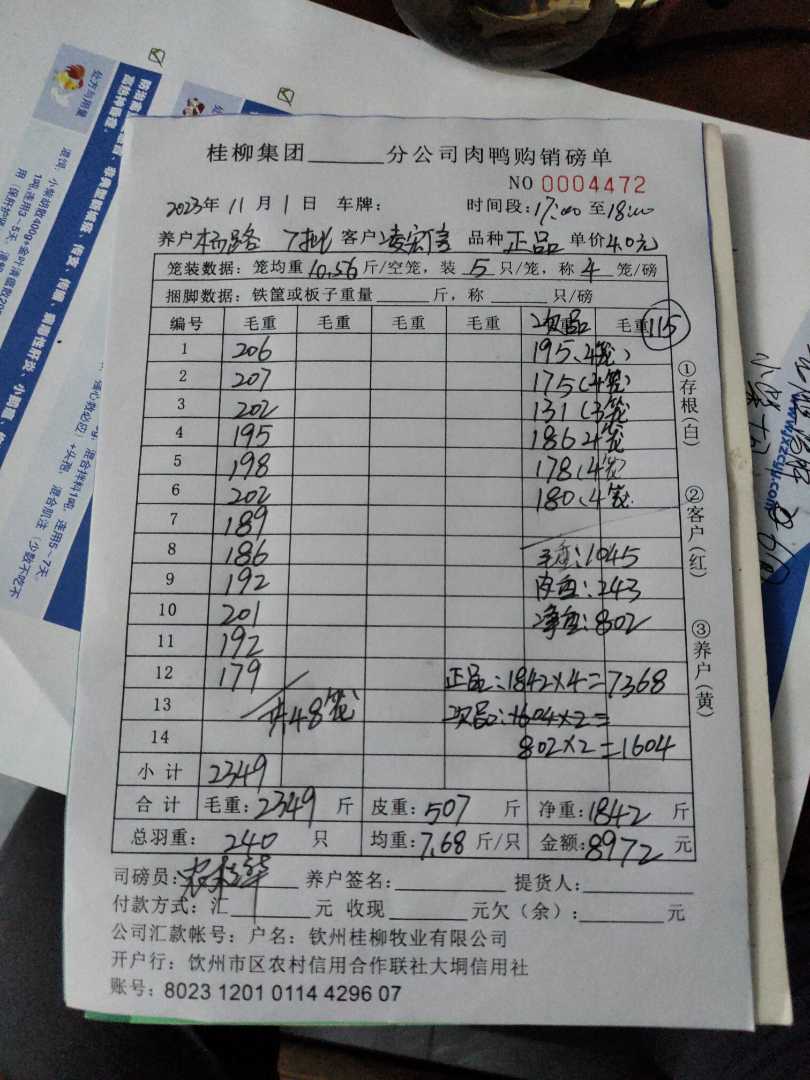 桂柳集团______分公司肉鸭购销磅单
NO 0004472
2023年 11月 1日 车牌: 时间段:17:00至18:00
养户 杨路 7批 客户 凌家富 品种 正品 单价 4.0元
笼装数据: 笼均重 10.56 斤/空笼, 装 5 只/笼, 称 4 笼/磅
捆脚数据: 铁筐或板子重量______斤, 称______只/磅
编号 毛重 毛重 毛重 毛重 次品 毛重 115
1 206 195(4笼)
2 207 175(4笼)
3 202 131(3笼
4 195 186 4笼
5 198 178(4笼)
6 202 180(4笼
7 189
8 186 毛重:1045
9 192 皮重:243
10 201 净重:802
11 192
12 179 正品:1842×4=7368
13 共48笼 次品:1604×2=
14 802×2=1604
小计 2349
合计 毛重:2349 斤 皮重:507 斤 净重:1842 斤
总羽重: 240 只 均重:7.68 斤/只 金额:8972 元
司磅员: 养户签名:________ 提货人:________
付款方式: 汇______元 收现______元欠(余):______元
公司汇款帐号: 户名: 钦州桂柳牧业有限公司
开户行: 钦州市区农村信用合作联社大垌信用社
账号: 8023 1201 0114 4296 07
①存根(白)
②客户(红)
③养户(黄)
处方与用量